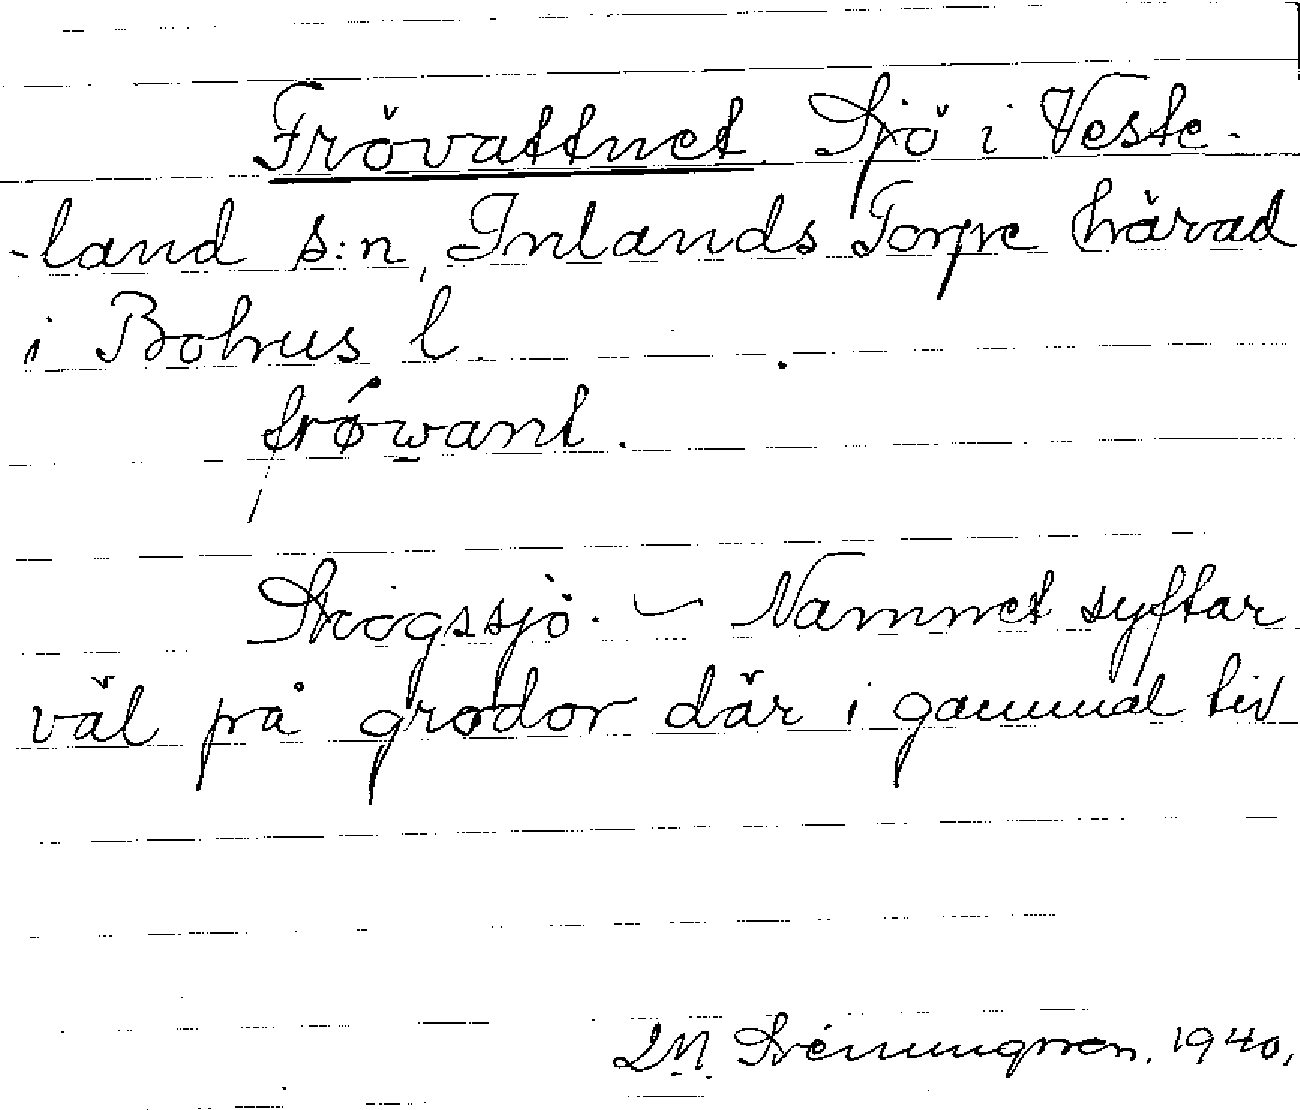 Frövattnet. Sjö i Veste-
-land s:n, Inlands Torpe härad
i Bohus l.
frǿwant.
Skogssjö. – Namnet syftar
väl på grodor där i gammal tid
1940.